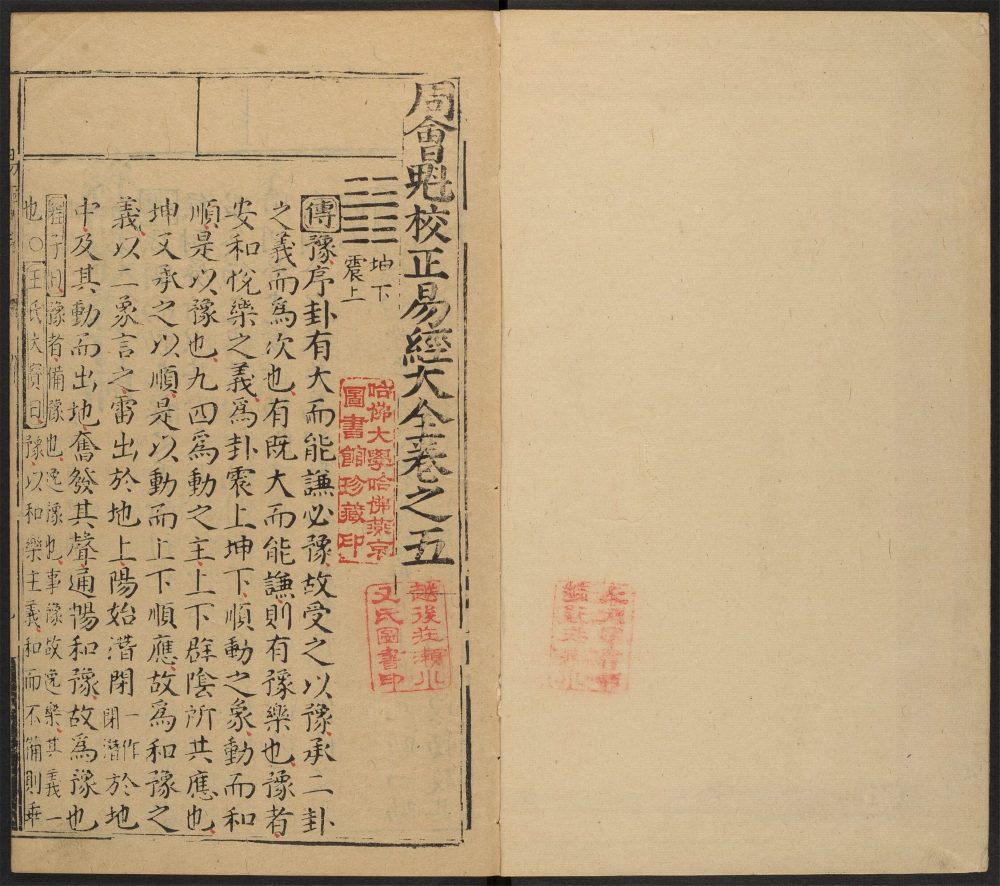 周會魁校正易經大全卷之五
坤下
震上
傳豫序卦有大而能謙必豫故受之以豫承二卦
之義而爲次也有既大而能謙則有豫樂也豫者
安和悅樂之義爲卦震上坤下順動之象動而和
順是以豫也九四爲動之主上下群陰所共應也
坤又承之以順是以動而上下順應故爲和豫之
義以二象言之雷出於地上陽始潛閉一作閉潛於地
中及其動而出地奮發其聲通暢和豫故爲豫也
程子曰豫者備豫也逸豫也事豫故逸樂其義一
也○王氏大寶曰豫以和樂主義和而不備則乖
哈佛大學哈佛燕京
圖書館珍藏印
越後荘瀬小
氏圖書印